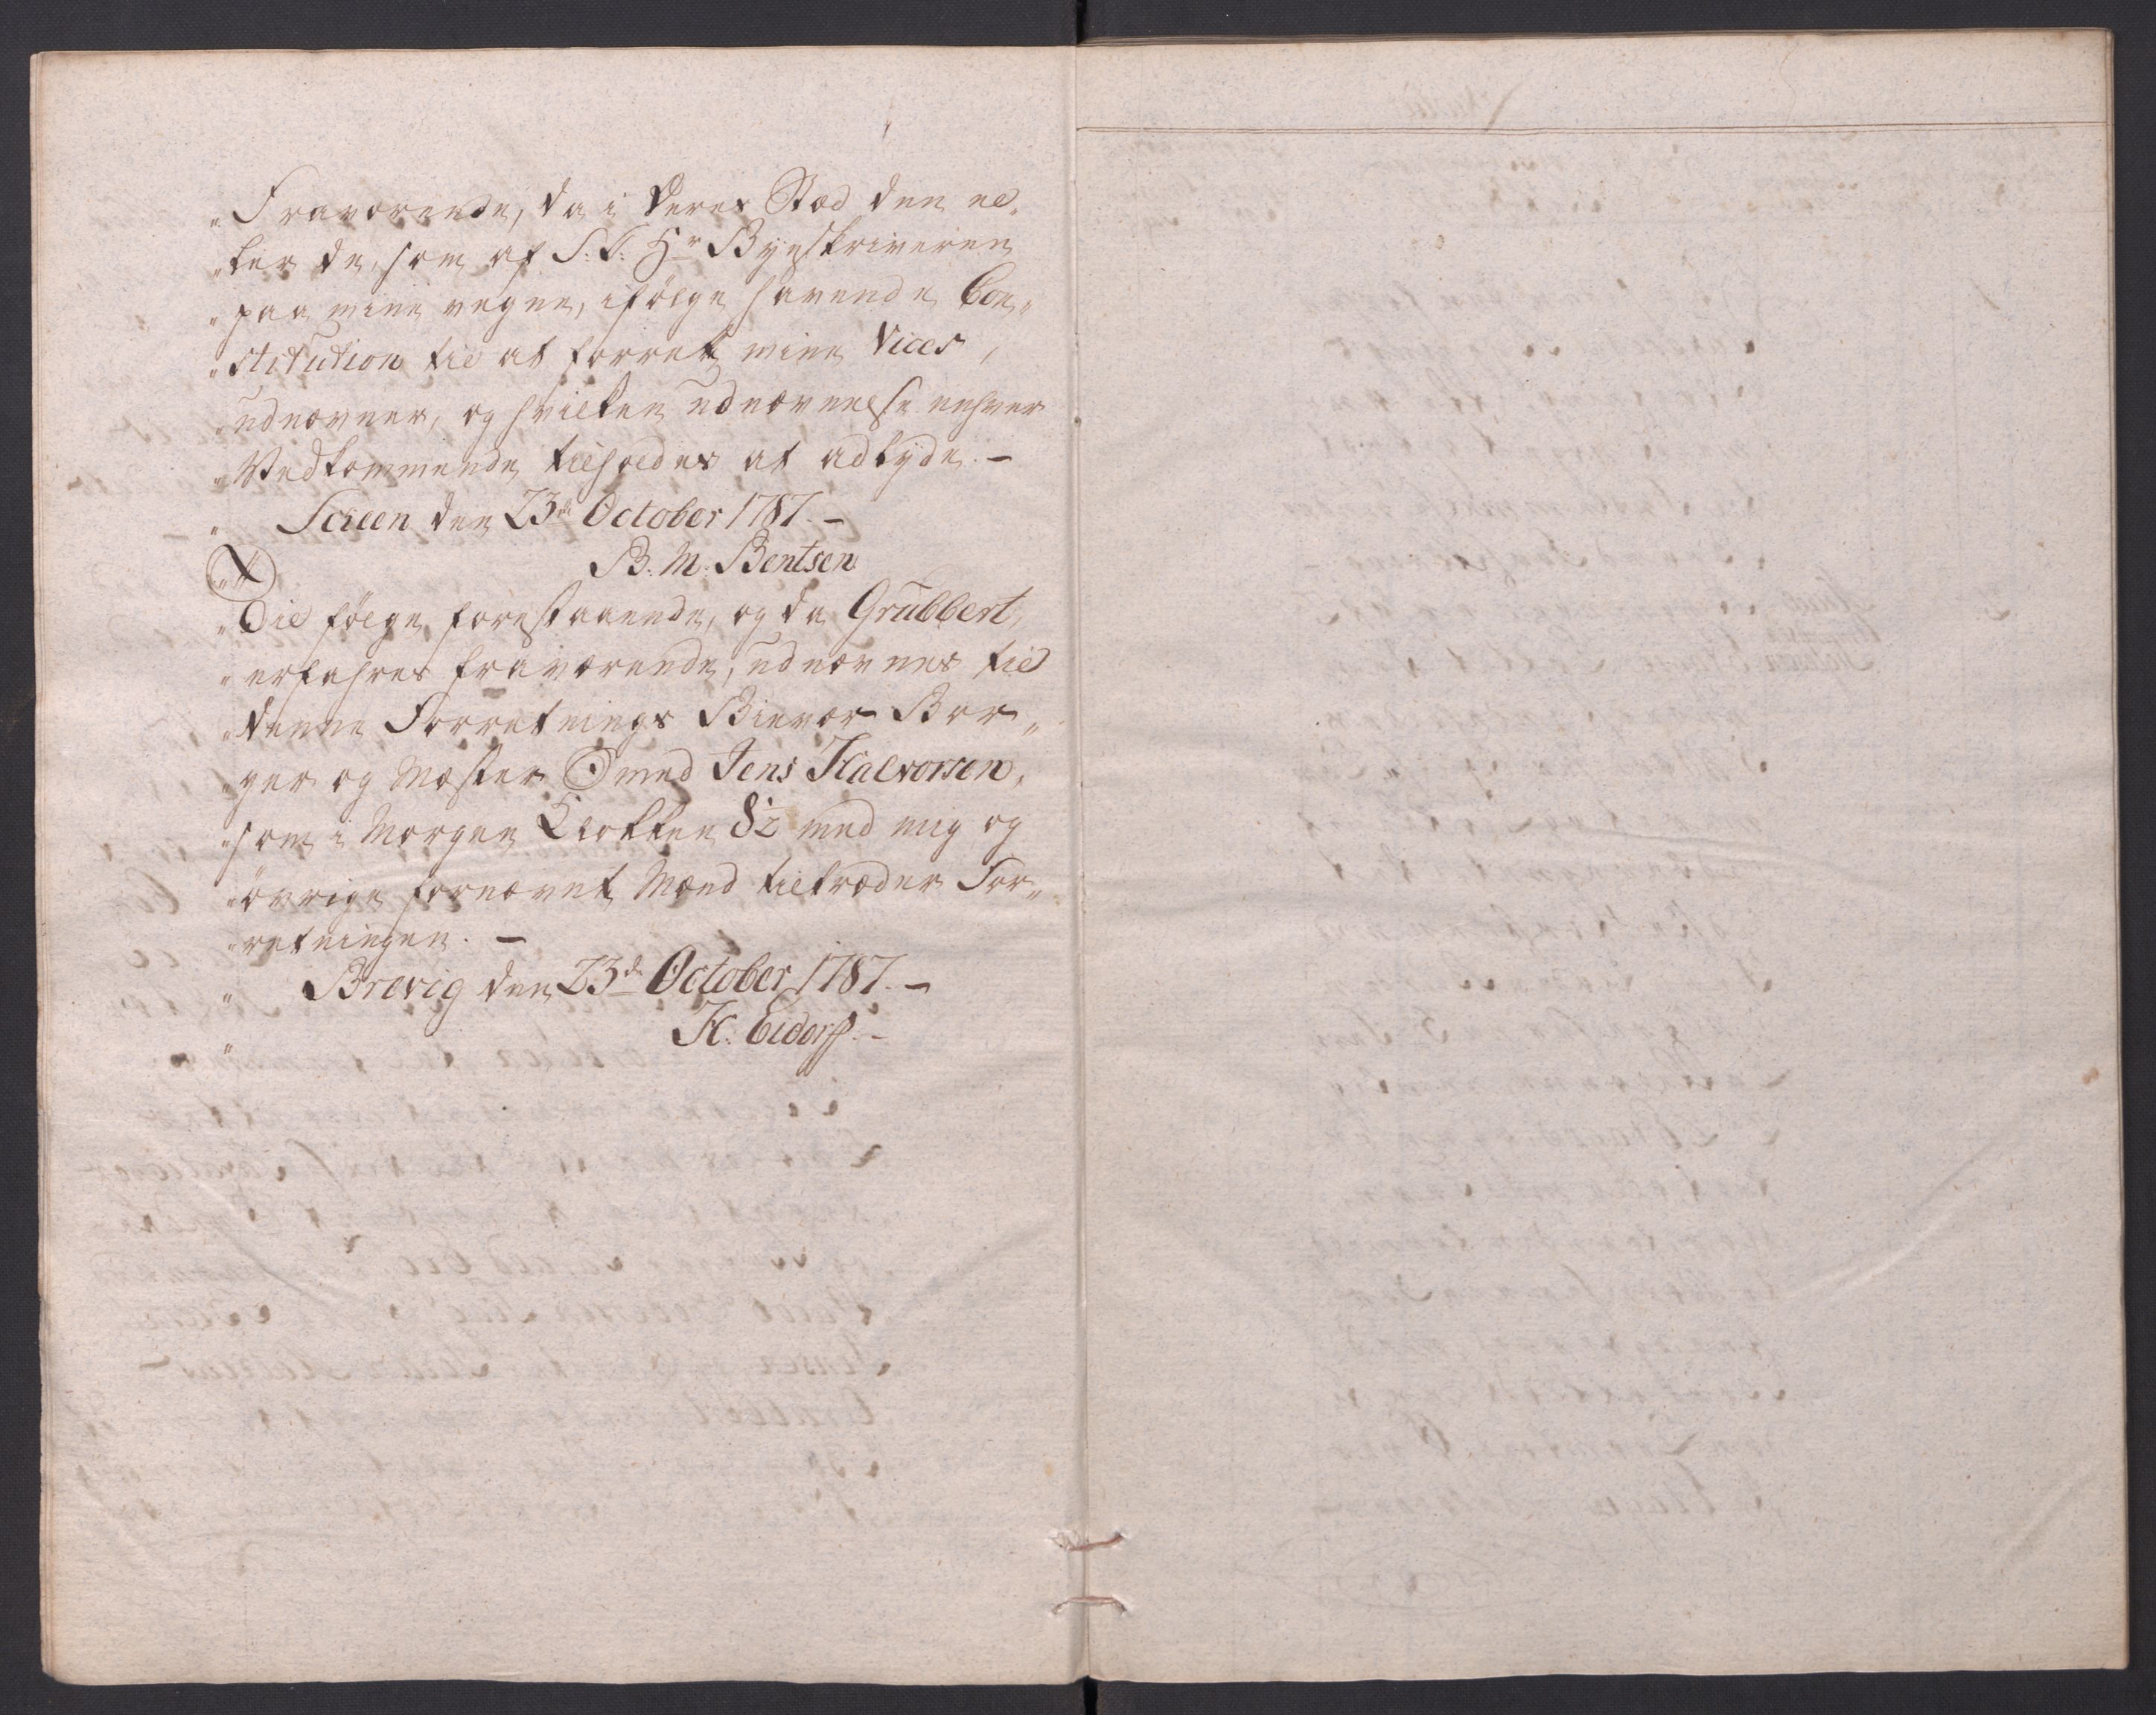 „Fraværende, da i deres Stæd den el„
„ler de, som af S: T: Hr Byeskriveren
„paa mine vegne, ifölge havende Con„
„stitution til at forrette mine Vices,
„udnævner, og hvilken udnævnelse enhver
„Vedkommende tilholdes at adlyde. –
„ Scheen den 23de October 1787. –
„ B. M. Bentsen
„Til fölge forestaaende, og da Grubbert,
„erfahres fraværende, udnævnes til
„denne Forretnings Bievær Bor„
„ger og Mæster Smed Jens Halvorsen,
„som i Morgen Klokken 8½ med mig og
„övrige fornævnte Mænd tiltræder For„
„retningen. –
„ Brevig den 23de October 1787. –
„ H. Eidorff. –